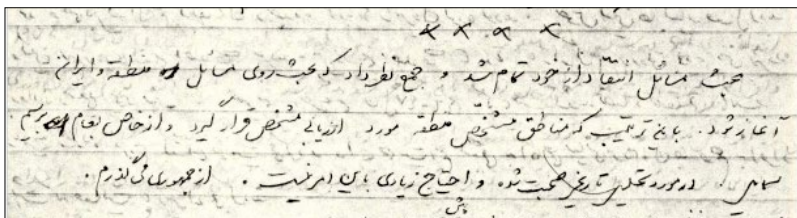 × × × ×
بحث مسائل انتقاد از خود تمام شد و جمع نظر داد که بحث روی مسائل منطقه و ایران
آغاز شود. باین ترتیب که مناطق مشخص منطقه مورد ارزیابی مشخص قرار گیرد و از خاص بعام برسیم.
در مورد تحلیل تاریخی صحبت شده و احتیاج زیادی باین امر نیست. از جمهوری می‌گذرم.